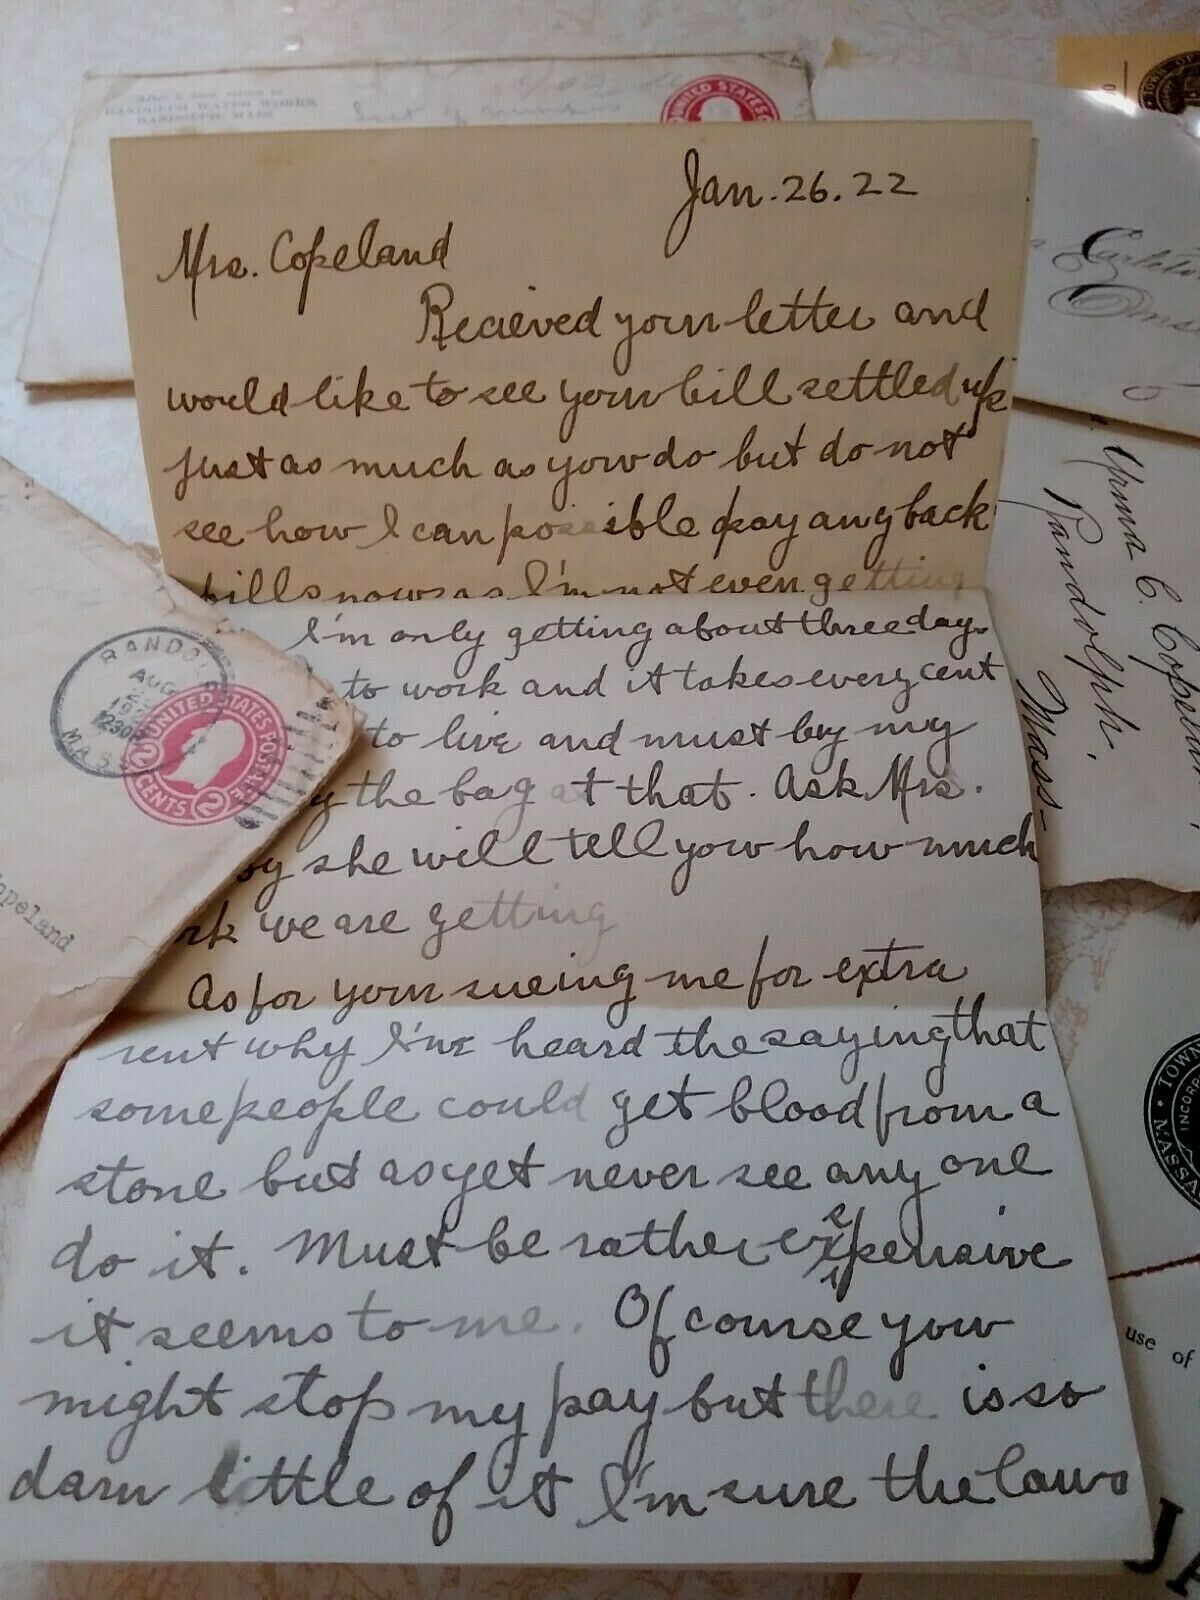 After 5 days, return to
RANDOLPH WATER WORKS,
RANDOLPH, MASS.
UNITED STATES
Jan. 26. 22
Mrs. Copeland
Recieved your letter and
would like to see your bill settled up
just as much as you do but do not
see how I can possible pay any back
bills now as I'm not even getting
I'm only getting about three days
to work and it takes every cent
to live and must buy my
the bag at that. Ask Mrs.
she will tell you how much
rk we are getting
As for your sueing me for extra
rent why I've heard the saying that
some people could get blood from a
stone but as yet never see any one
do it. Must be rather expensive
it seems to me. Of course you
might stop my pay but there is so
darn little of it I'm sure the laws
RANDOLPH
AUG
MASS
UNITED STATES POSTAGE
2 CENTS 2
opeland
C. Copeland,
Randolph,
Mass-
TOWN
INCORP
MASSA
use of
JA